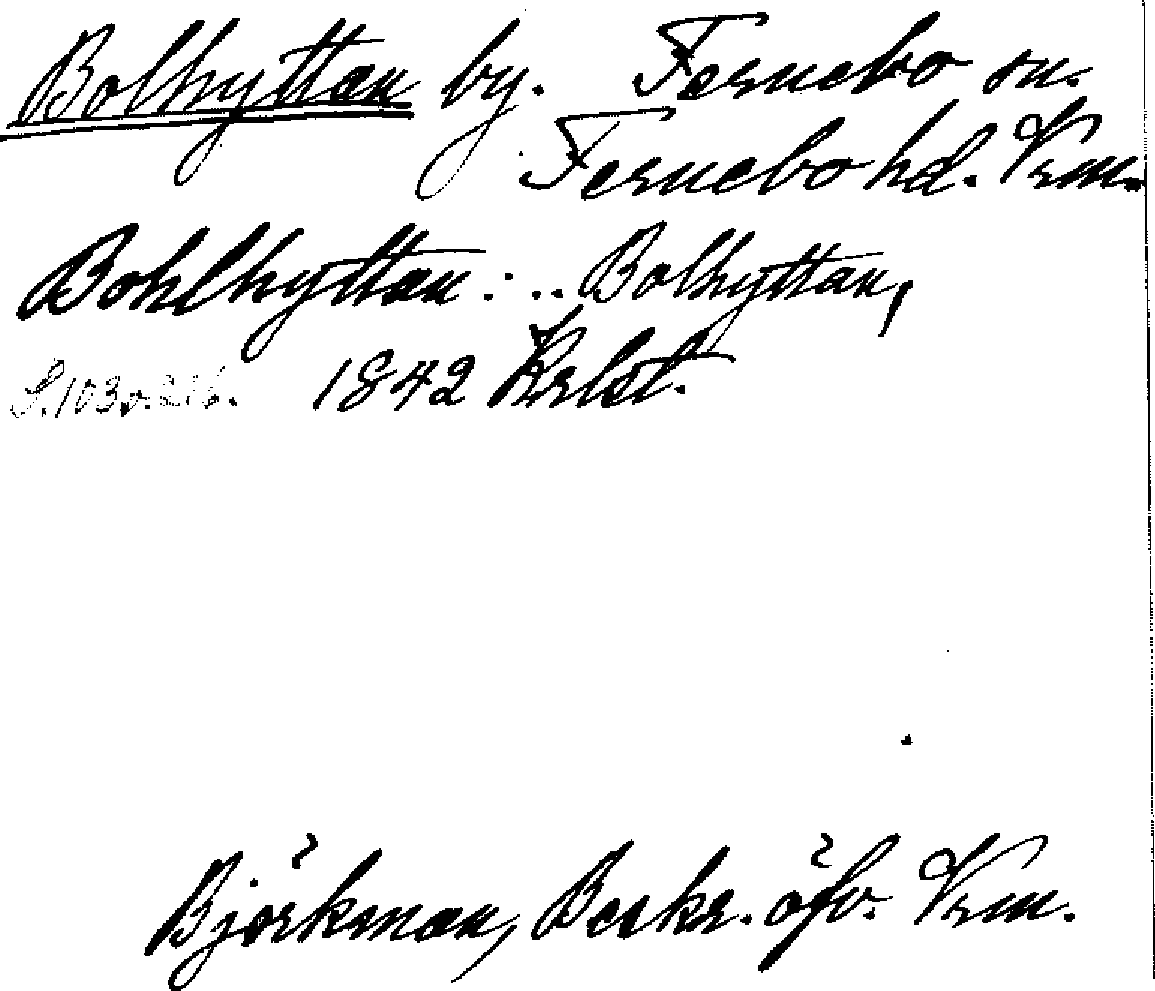 Bolhyttan by. Fernebo sn.
Fernebo hd. Vrm.
Bohlhyttan: .. Bolhyttan,
S. 103 o. 216. 1842 Krlst.
Björkman, Beskr. öfv. Vrm.